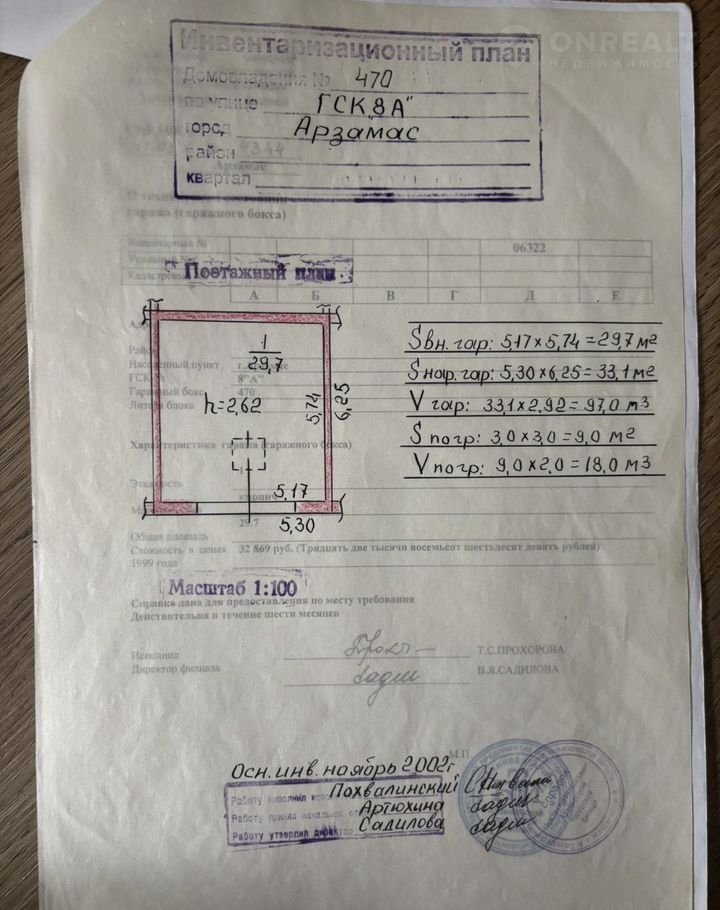 ONREALT
НЕДВИЖИМОСТЬ
Инвентаризационный план
Домовладения № 470
по улице ГСК„8А"
город Арзамас
район
квартал
гаража (гаражного бокса)
Инвентарный № 06322
Поэтажный план
А Б В Г Д Е
1
29,7
h=2,62
5,74
6,25
5,17
5,30
Sвн. гар: 5,17×5,74=29,7 м2
Sнар. гар: 5,30×6,25=33,1 м2
V гар: 33,1×2,92=97,0 м3
S погр: 3,0×3,0=9,0 м2
V погр: 9,0×2,0=18,0 м3
Населенный пункт
8"А"
Гаражный бокс 470
Литера блока
Характеристика гаража (гаражного бокса)
Этажность
кирпич
29.7
Общая площадь
Стоимость в ценах 32 869 руб. (Тридцать две тысячи восемьсот шестьдесят девять рублей)
1999 года
Масштаб 1:100
Справка дана для предоставления по месту требования
Действительна в течение шести месяцев
Исполнил Т.С.ПРОХОРОВА
Директор филиала В.Я.САДИЛОВА
М.П
Осн. инв. ноябрь 2002г
Работу выполнил Похвалинский
Работу принял начальник Артюхина
Работу утвердил директор Садилова